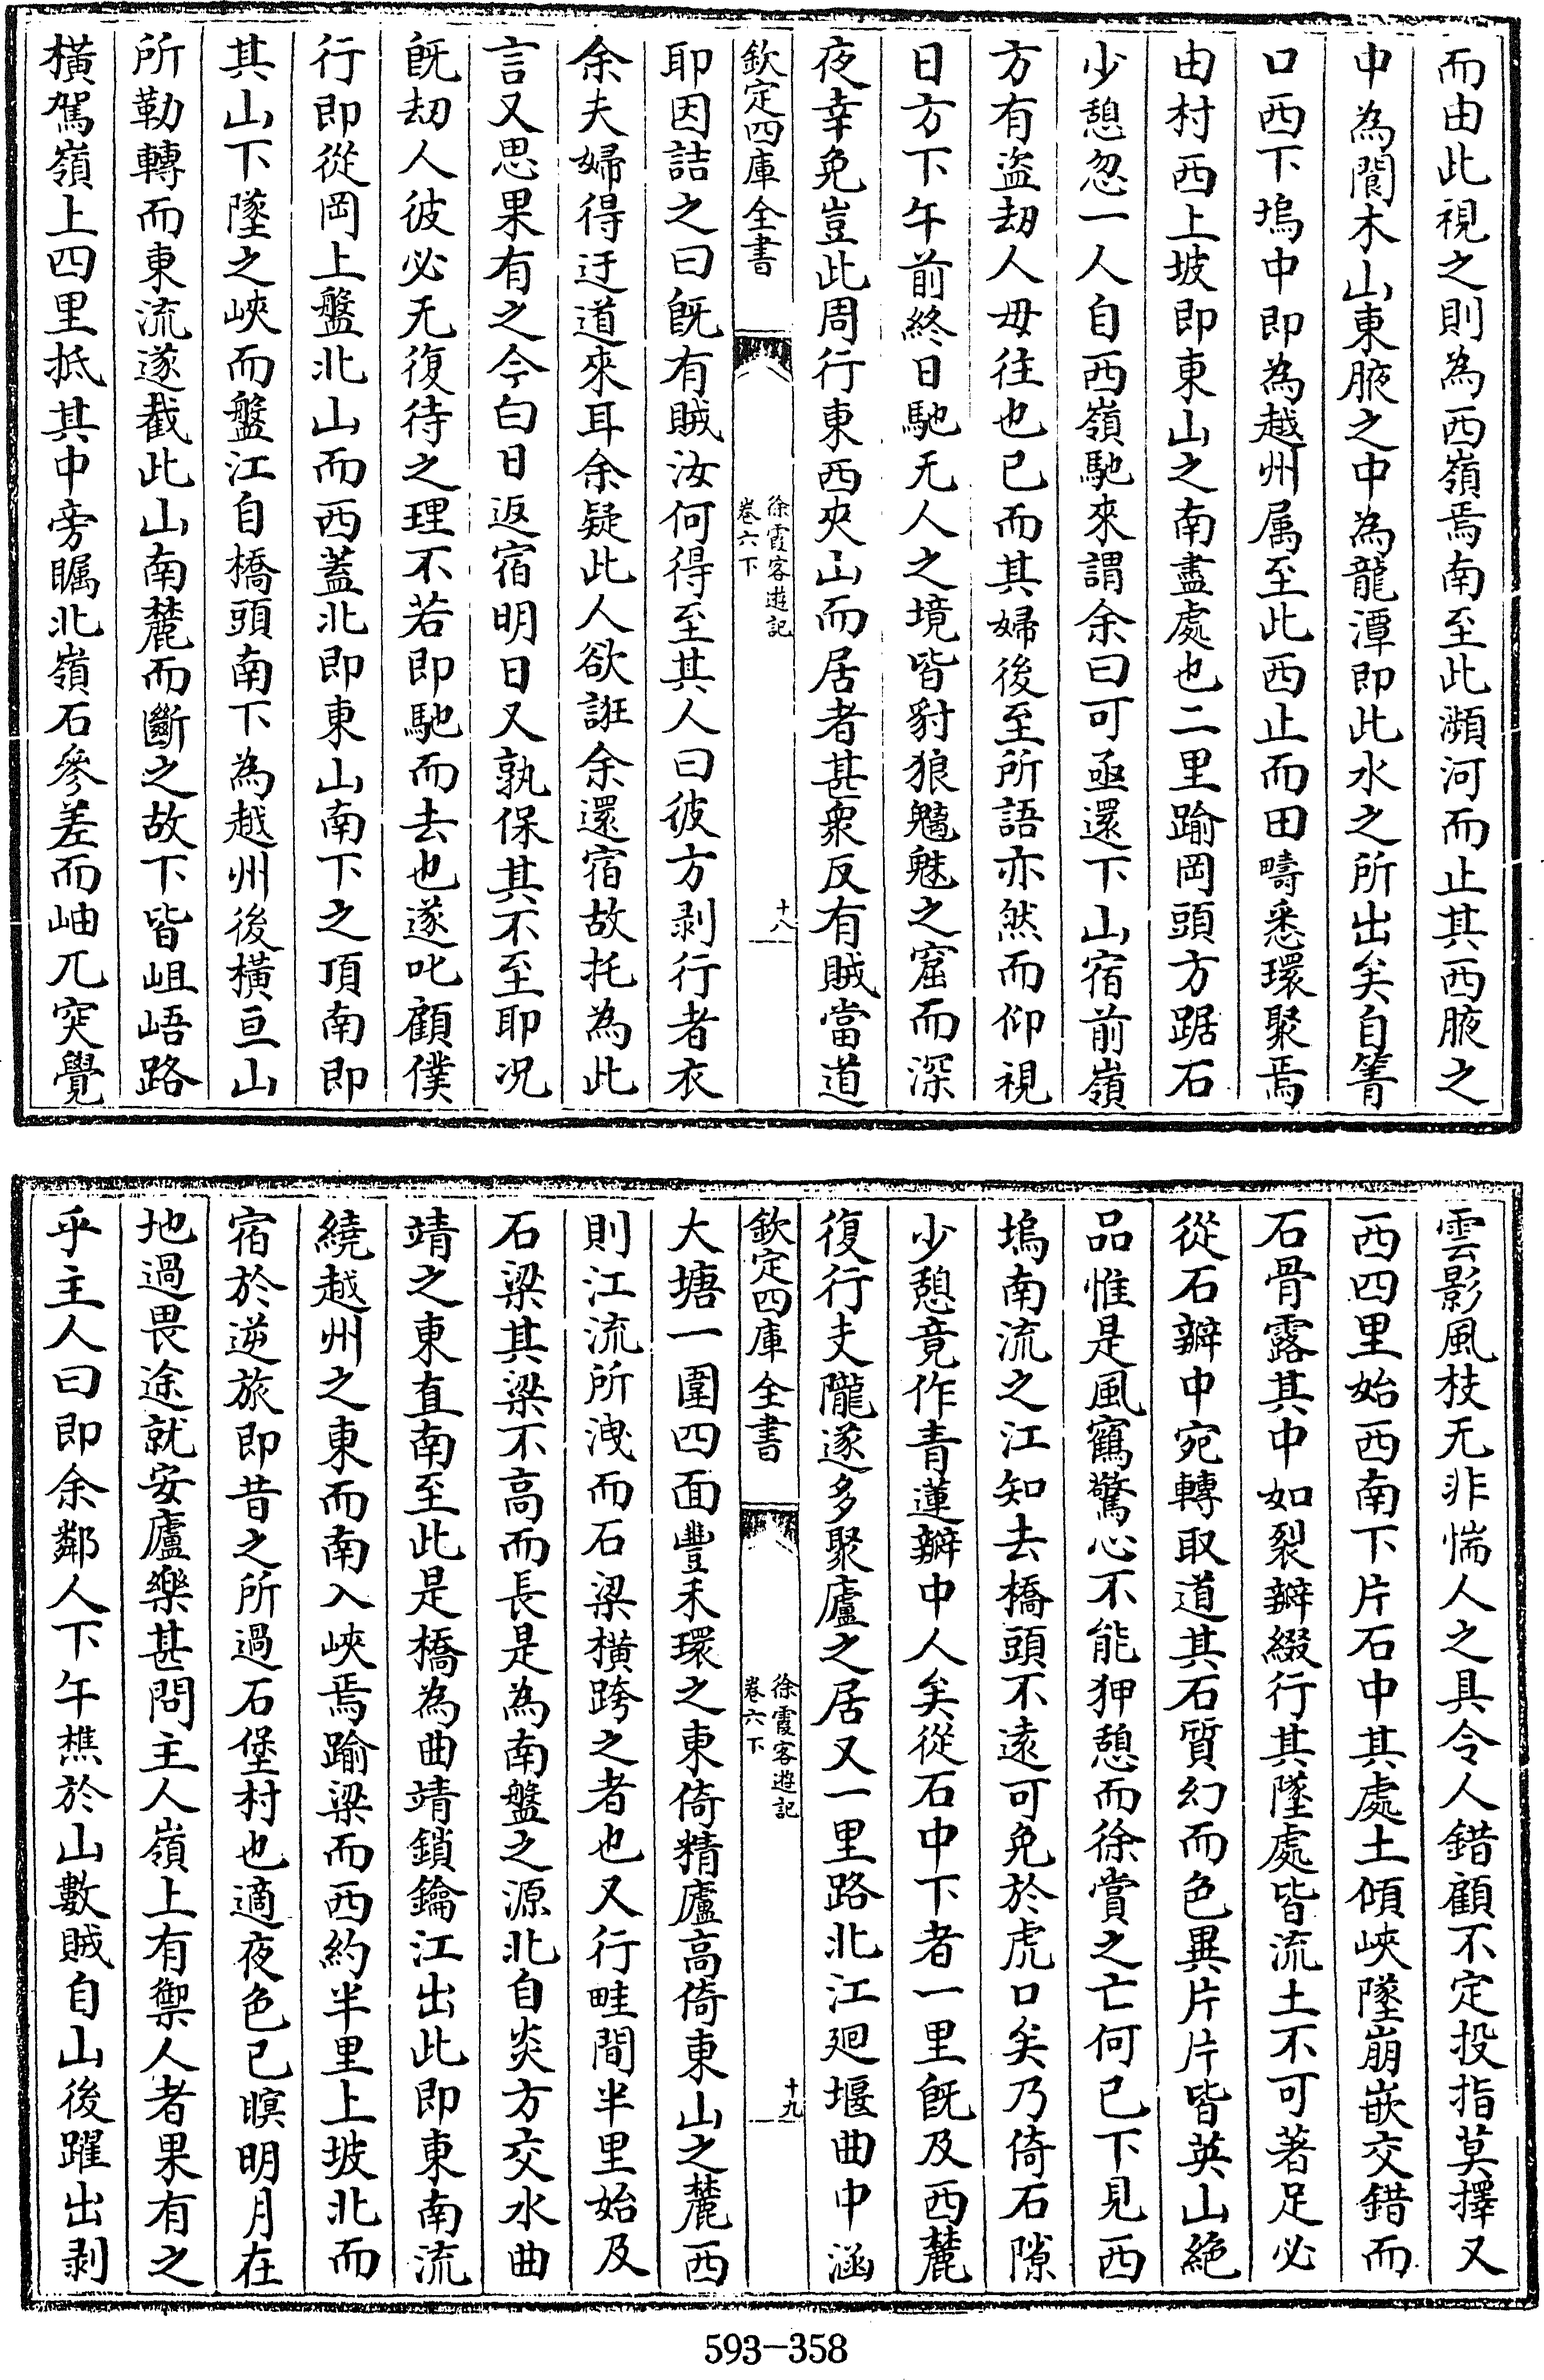 而由此視之則為西嶺焉南至此瀕河而止其西腋之
中為閬木山東腋之中為龍潭即此水之所出矣自箐
口西下塢中即為越州属至此西止而田疇悉環聚焉
由村西上坡即東山之南盡處也二里踰岡頭方踞石
少憩忽一人自西嶺馳來謂余曰可亟還下山宿前嶺
方有盜刼人毋往也已而其婦後至所語亦然而仰視
日方下午前終日馳无人之境皆豺狼魑魅之窟而深
夜幸免豈此周行東西夾山而居者甚衆反有賊當道
欽定四庫全書
徐霞客遊記
卷六下
十八
耶因詰之曰既有賊汝何得至其人曰彼方剥行者衣
余夫婦得迂道來耳余疑此人欲誑余還宿故托為此
言又思果有之今白日返宿明日又孰保其不至耶况
既刼人彼必无復待之理不若即馳而去也遂叱顧僕
行即從岡上盤北山而西蓋北即東山南下之頂南即
其山下墜之峽而盤江自橋頭南下為越州後橫亘山
所勒轉而東流遂截此山南麓而斷之故下皆岨峿路
橫駕嶺上四里抵其中旁瞩北嶺石參差而岫兀突覺
雲影風枝无非惴人之具令人錯顧不定投指莫擇又
西四里始西南下片石中其處土傾峽墜崩嵌交錯而
石骨露其中如裂瓣綴行其墜處皆流土不可著足必
從石瓣中宛轉取道其石質幻而色異片片皆英山絶
品惟是風鶴驚心不能狎憩而徐賞之亡何已下見西
塢南流之江知去橋頭不遠可免於虎口矣乃倚石隙
少憩竟作青蓮瓣中人矣從石中下者一里既及西麓
復行支隴遂多聚廬之居又一里路北江廻堰曲中涵
欽定四庫全書
徐霞客遊記
卷六下
十九
大塘一圍四面豐禾環之東倚精廬高倚東山之麓西
則江流所洩而石梁橫跨之者也又行畦間半里始及
石梁其梁不高而長是為南盤之源北自炎方交水曲
靖之東直南至此是橋為曲靖鎖鑰江出此即東南流
繞越州之東而南入峽焉踰梁而西約半里上坡北而
宿於逆旅即昔之所過石堡村也適夜色已暝明月在
地過畏途就安廬樂甚問主人嶺上有禦人者果有之
乎主人曰即余鄰人下午樵於山數賊自山後躍出剥
593-358